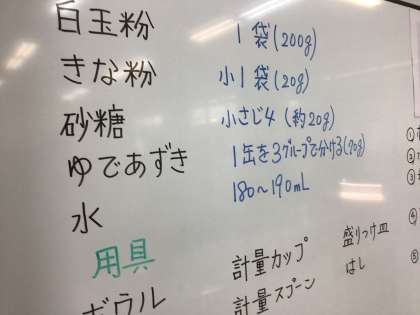 白玉粉 1袋(200g)
きな粉 小1袋(20g)
砂糖 小さじ4(約20g)
ゆであずき 1缶を3グループで分ける(70g)
水 180~190mL
用具
ボウル 計量カップ 盛りつけ皿
計量スプーン はし
①
②
③
④
⑤